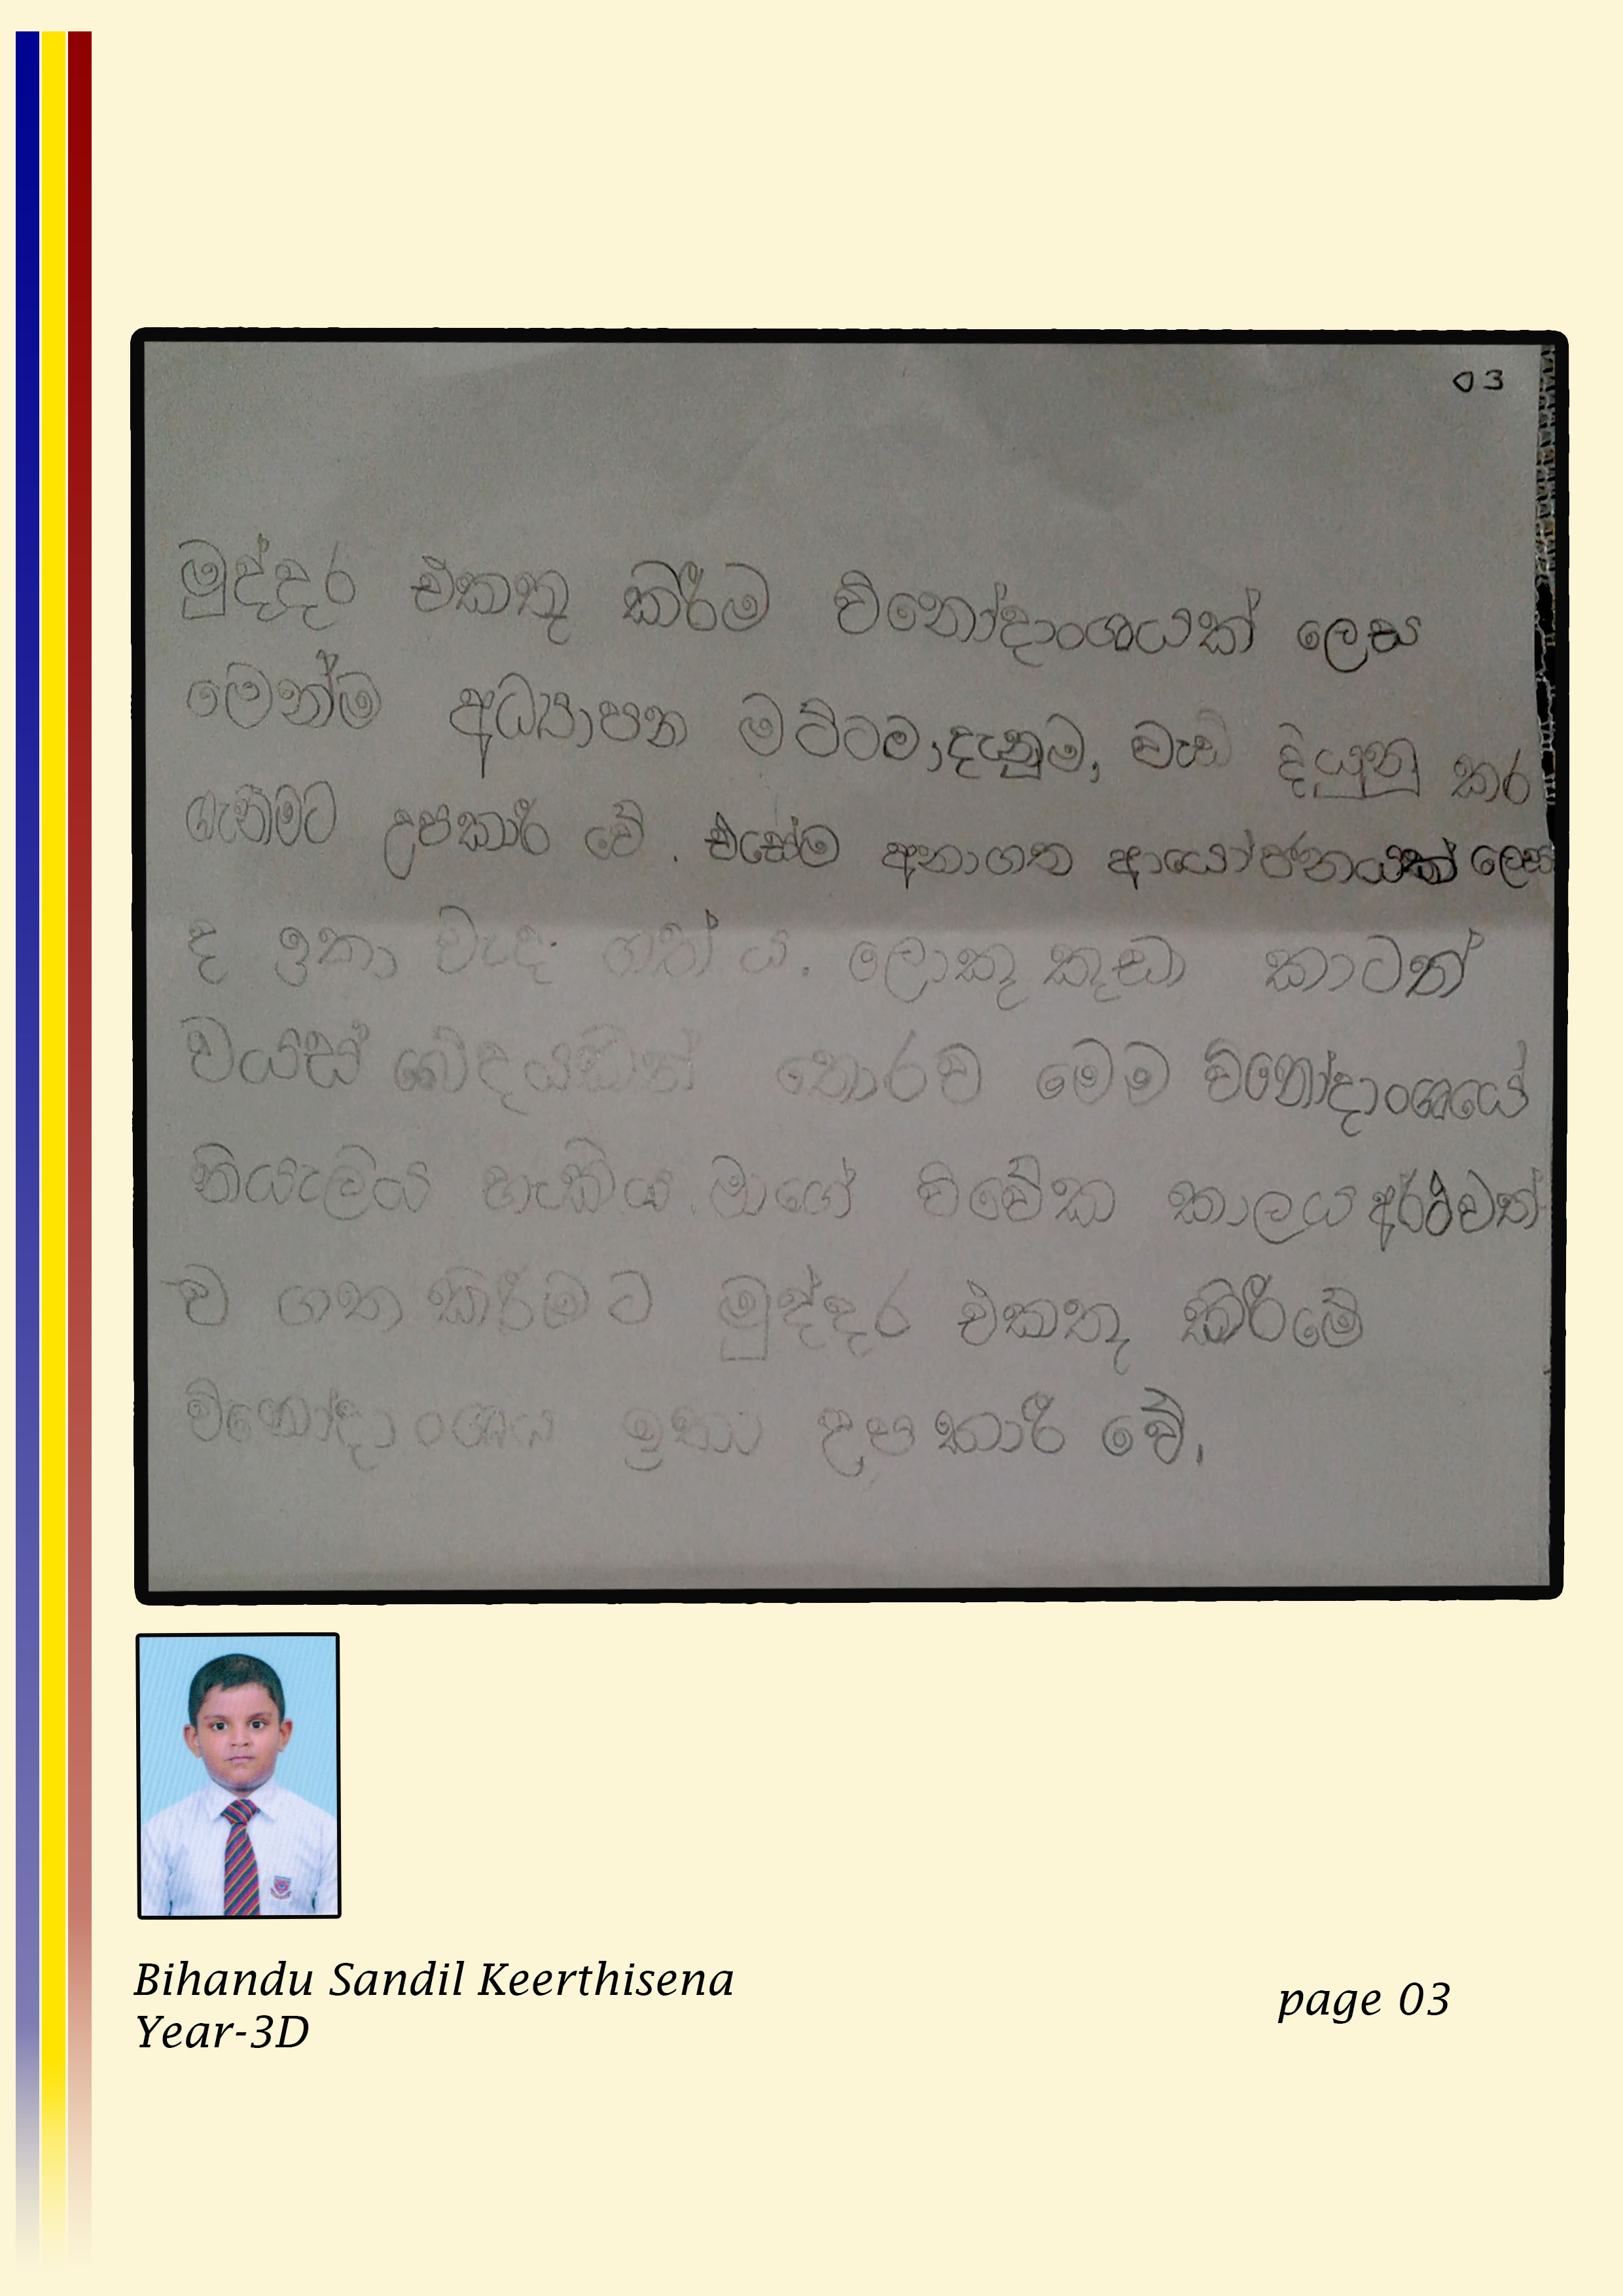 03
මුද්දර එකතු කිරීම විනෝදාංශයක් ලෙස
මෙන්ම අධ්‍යාපන මට්ටම,දැනුම, වැඩි දියුනු කර
ගැනීමට උපකාරී වේ. එසේම අනාගත ආයෝජනයක් ලෙස
ද ඉතා වැද ගත් ය. ලොකු කුඩා කාටත්
වයස් බේදයකින් තොරව මෙම විනෝදාංශයේ
නියැලිය හැකිය. මාගේ විවේක කාලය අර්ථවත්
ව ගත කිරීමට මුද්දර එකතු කිරීමේ
විනෝදාංශය ඉතා උපකාරී වේ.
Bihandu Sandil Keerthisena
Year-3D
page 03